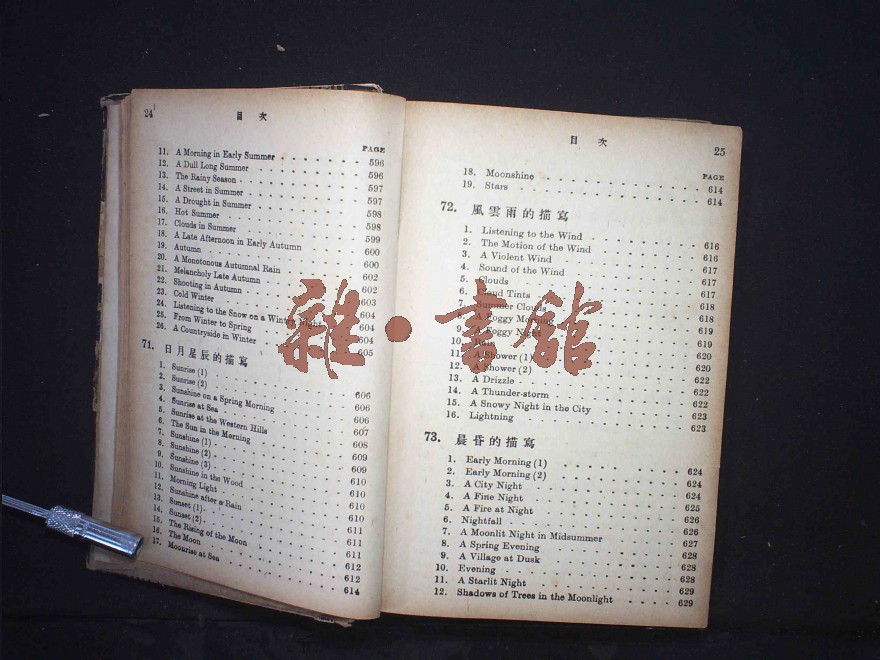 24
目 次
PAGE
11. A Morning in Early Summer 596
12. A Dull Long Summer 596
13. The Rainy Season 597
14. A Street in Summer 597
15. A Drought in Summer 598
16. Hot Summer 598
17. Clouds in Summer 599
18. A Late Afternoon in Early Autumn 600
19. Autumn 600
20. A Monotonous Autumnal Rain 602
21. Melancholy Late Autumn 602
22. Shooting in Autumn 603
23. Cold Winter 604
24. Listening to the Snow on a Winter Night 604
25. From Winter to Spring 604
26. A Countryside in Winter 605
71. 日月星辰的描寫
1. Sunrise (1) 606
2. Sunrise (2) 606
3. Sunshine on a Spring Morning 606
4. Sunrise at Sea 607
5. Sunrise at the Western Hills 608
6. The Sun in the Morning 609
7. Sunshine (1) 609
8. Sunshine (2) 610
9. Sunshine (3) 610
10. Sunshine in the Wood 610
11. Morning Light 610
12. Sunshine after a Rain 611
13. Sunset (1) 611
14. Sunset (2) 611
15. The Rising of the Moon 612
16. The Moon 612
17. Moonrise at Sea 614
目 次
25
PAGE
18. Moonshine 614
19. Stars 614
72. 風雲雨的描寫
1. Listening to the Wind 616
2. The Motion of the Wind 616
3. A Violent Wind 617
4. Sound of the Wind 617
5. Clouds 617
6. Cloud Tints 618
7. Summer Clouds 618
8. A Foggy Morning 619
9. A Foggy Night 619
10. Rain 620
11. A Shower (1) 620
12. A Shower (2) 622
13. A Drizzle 622
14. A Thunder-storm 622
15. A Snowy Night in the City 623
16. Lightning 623
73. 晨昏的描寫
1. Early Morning (1) 624
2. Early Morning (2) 624
3. A City Night 624
4. A Fine Night 625
5. A Fire at Night 626
6. Nightfall 627
7. A Moonlit Night in Midsummer 628
8. A Spring Evening 628
9. A Village at Dusk 628
10. Evening 628
11. A Starlit Night 629
12. Shadows of Trees in the Moonlight 629
雜·書館